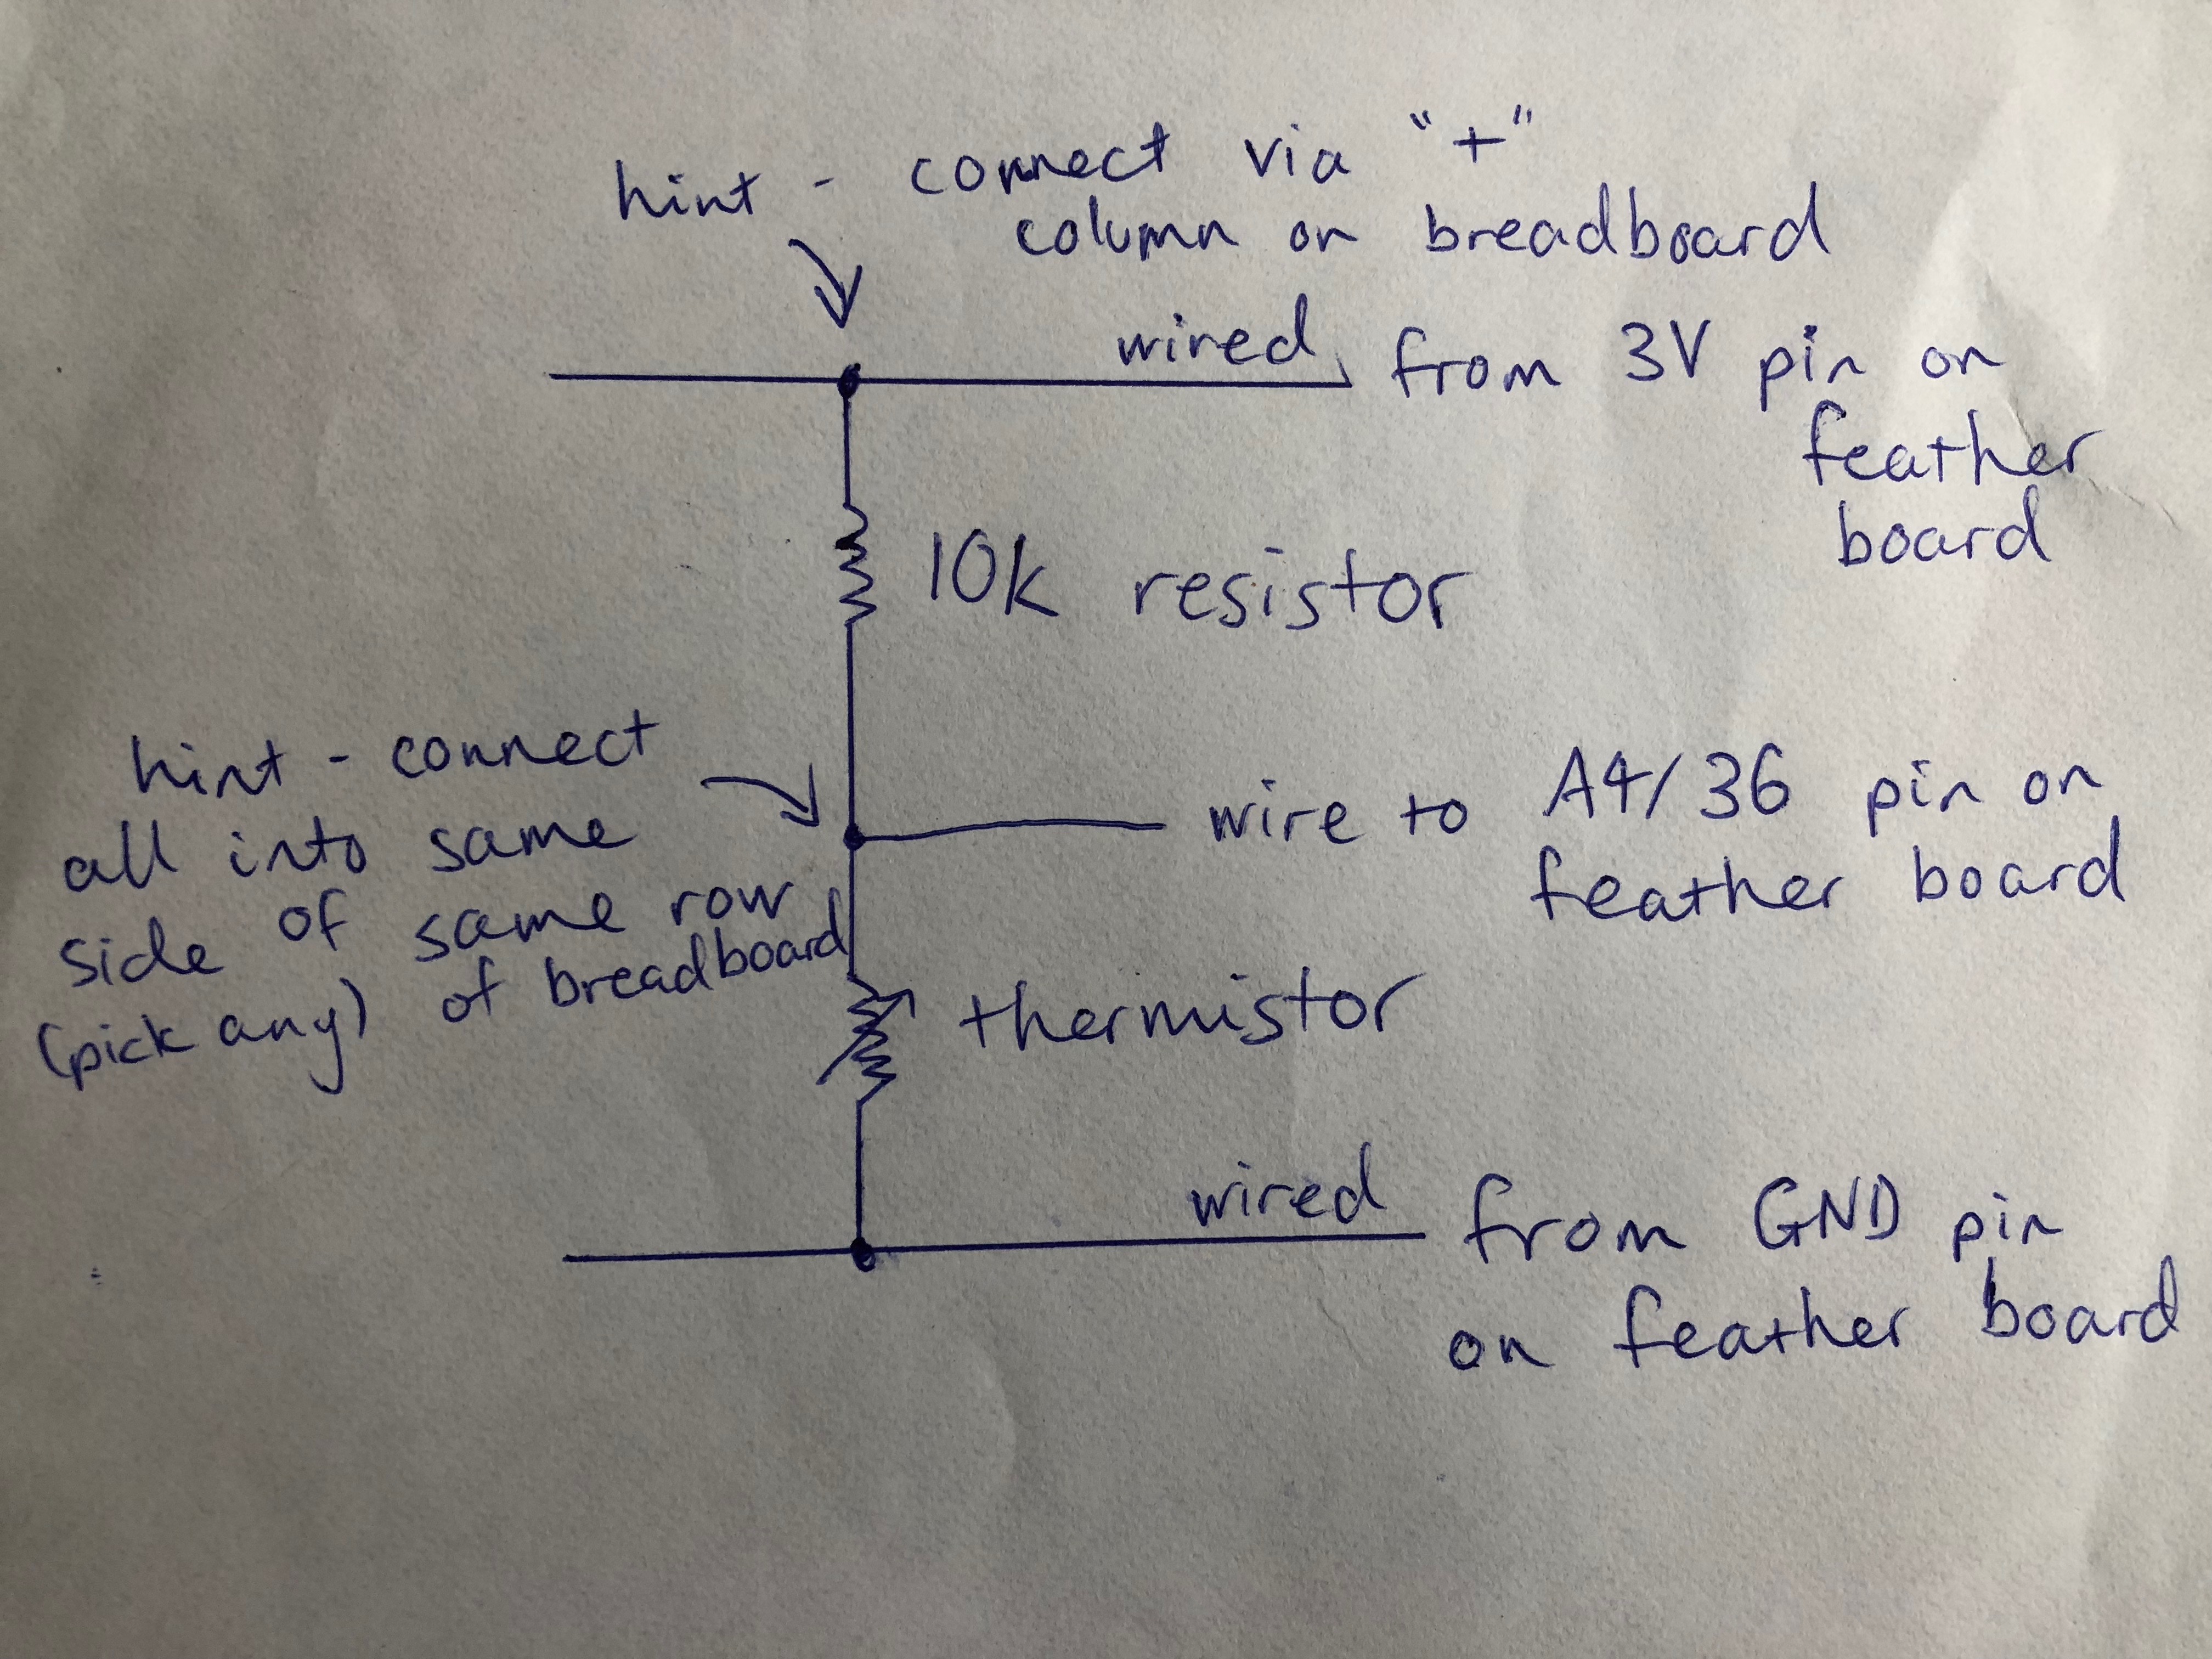 hint - connect via "+"
column on breadboard
wired from 3V pin on
feather
board
10k resistor
hint - connect
all into same
side of same row
(pick any) of breadboard
wire to A4/36 pin on
feather board
thermistor
wired from GND pin
on feather board